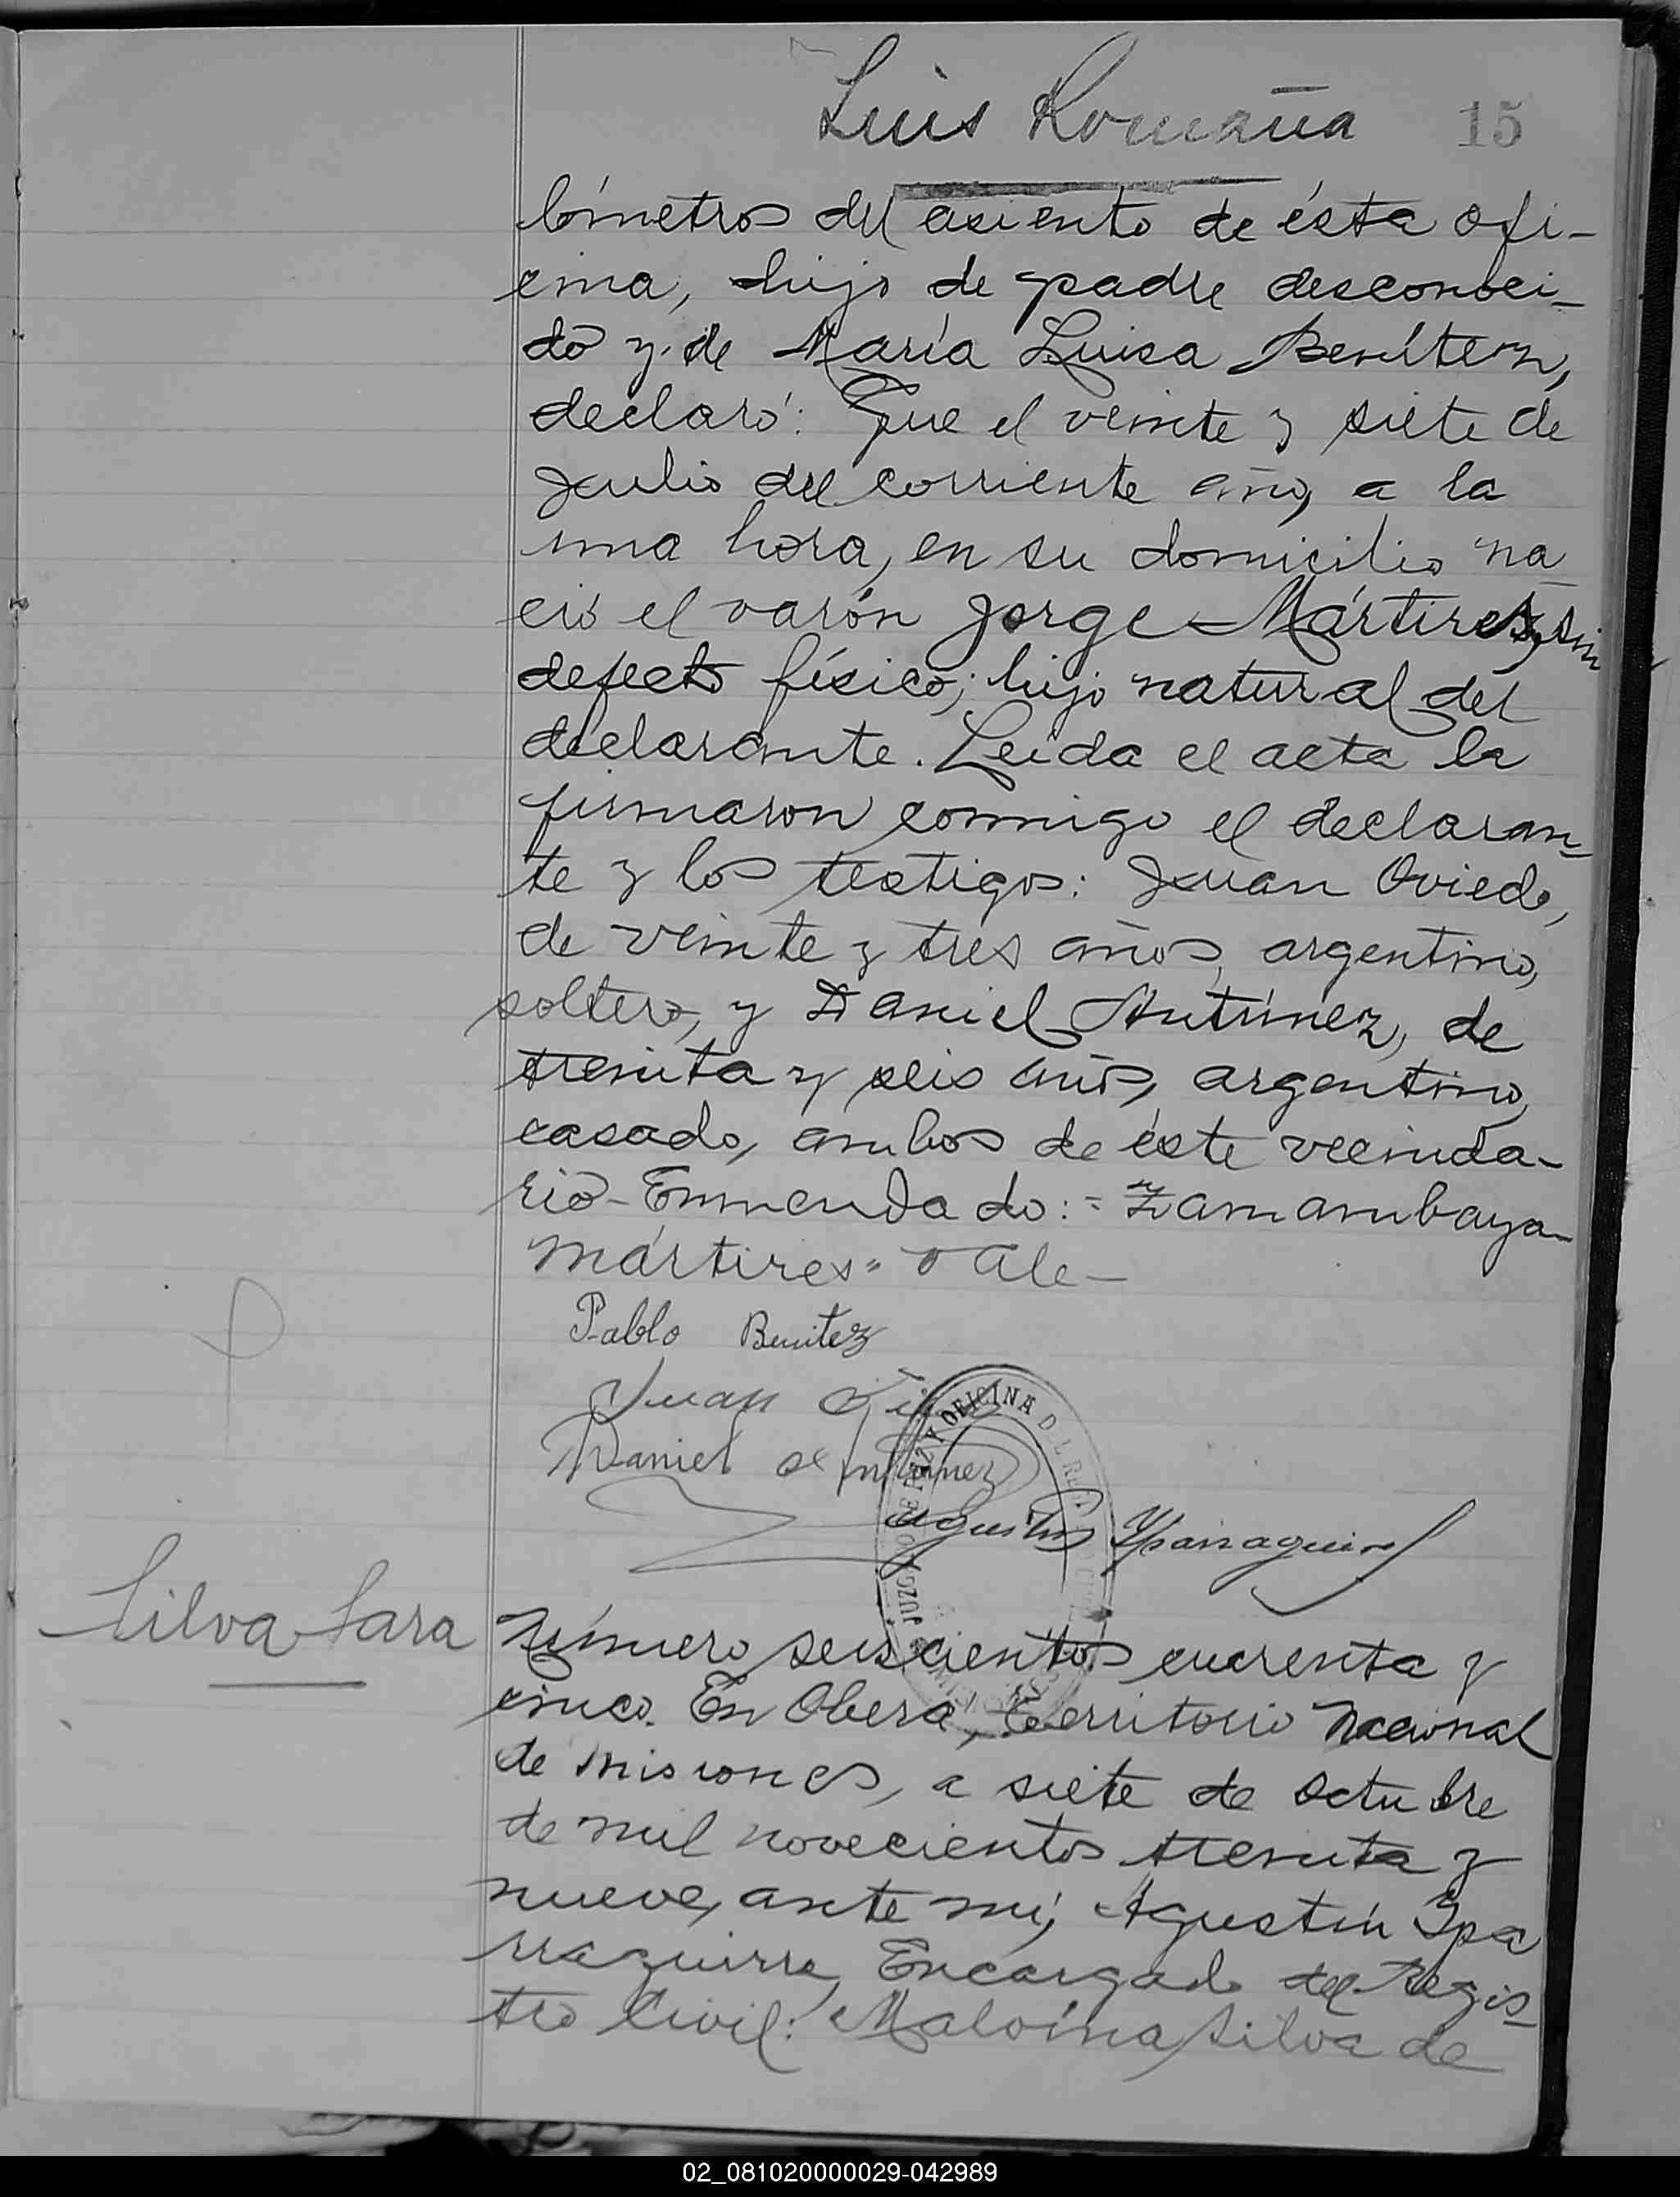 Luis Romaña 15
lómetros del asiento de ésta ofi-
cina, hijo de padre desconoci-
do y de María Luisa Benítez,
declaró: Que el veinte y siete de
Julio del corriente año, a la
una hora, en su domicilio na
ció el varón Jorge Mártires, sin
defecto físico; hijo natural del
declarante. Leída el acta la
firmaron conmigo el declaran-
te y los testigos: Juan Oviedo,
de veinte y tres años, argentino,
soltero, y Daniel Antúnez, de
treinta y seis años, argentino,
casado, ambos de éste vecinda-
rio-Enmendado:=Zamambaya-
Mártires" Vale-
Pablo Benitez
Juan
Daniel Antunez
Agustin Yparraguirre
OFICINA D L REG
JUZG DE PAZ Y
Silva Sara
Número seiscientos cuarenta y
cinco. En Oberá, Territorio Nacional
de Misiones, a siete de Octubre
de mil novecientos treinta y
nueve, ante mí, Agustín Ypa
rraguirre, Encargado del Regis-
tro Civil: Malvina Silva de
02_081020000029-042989